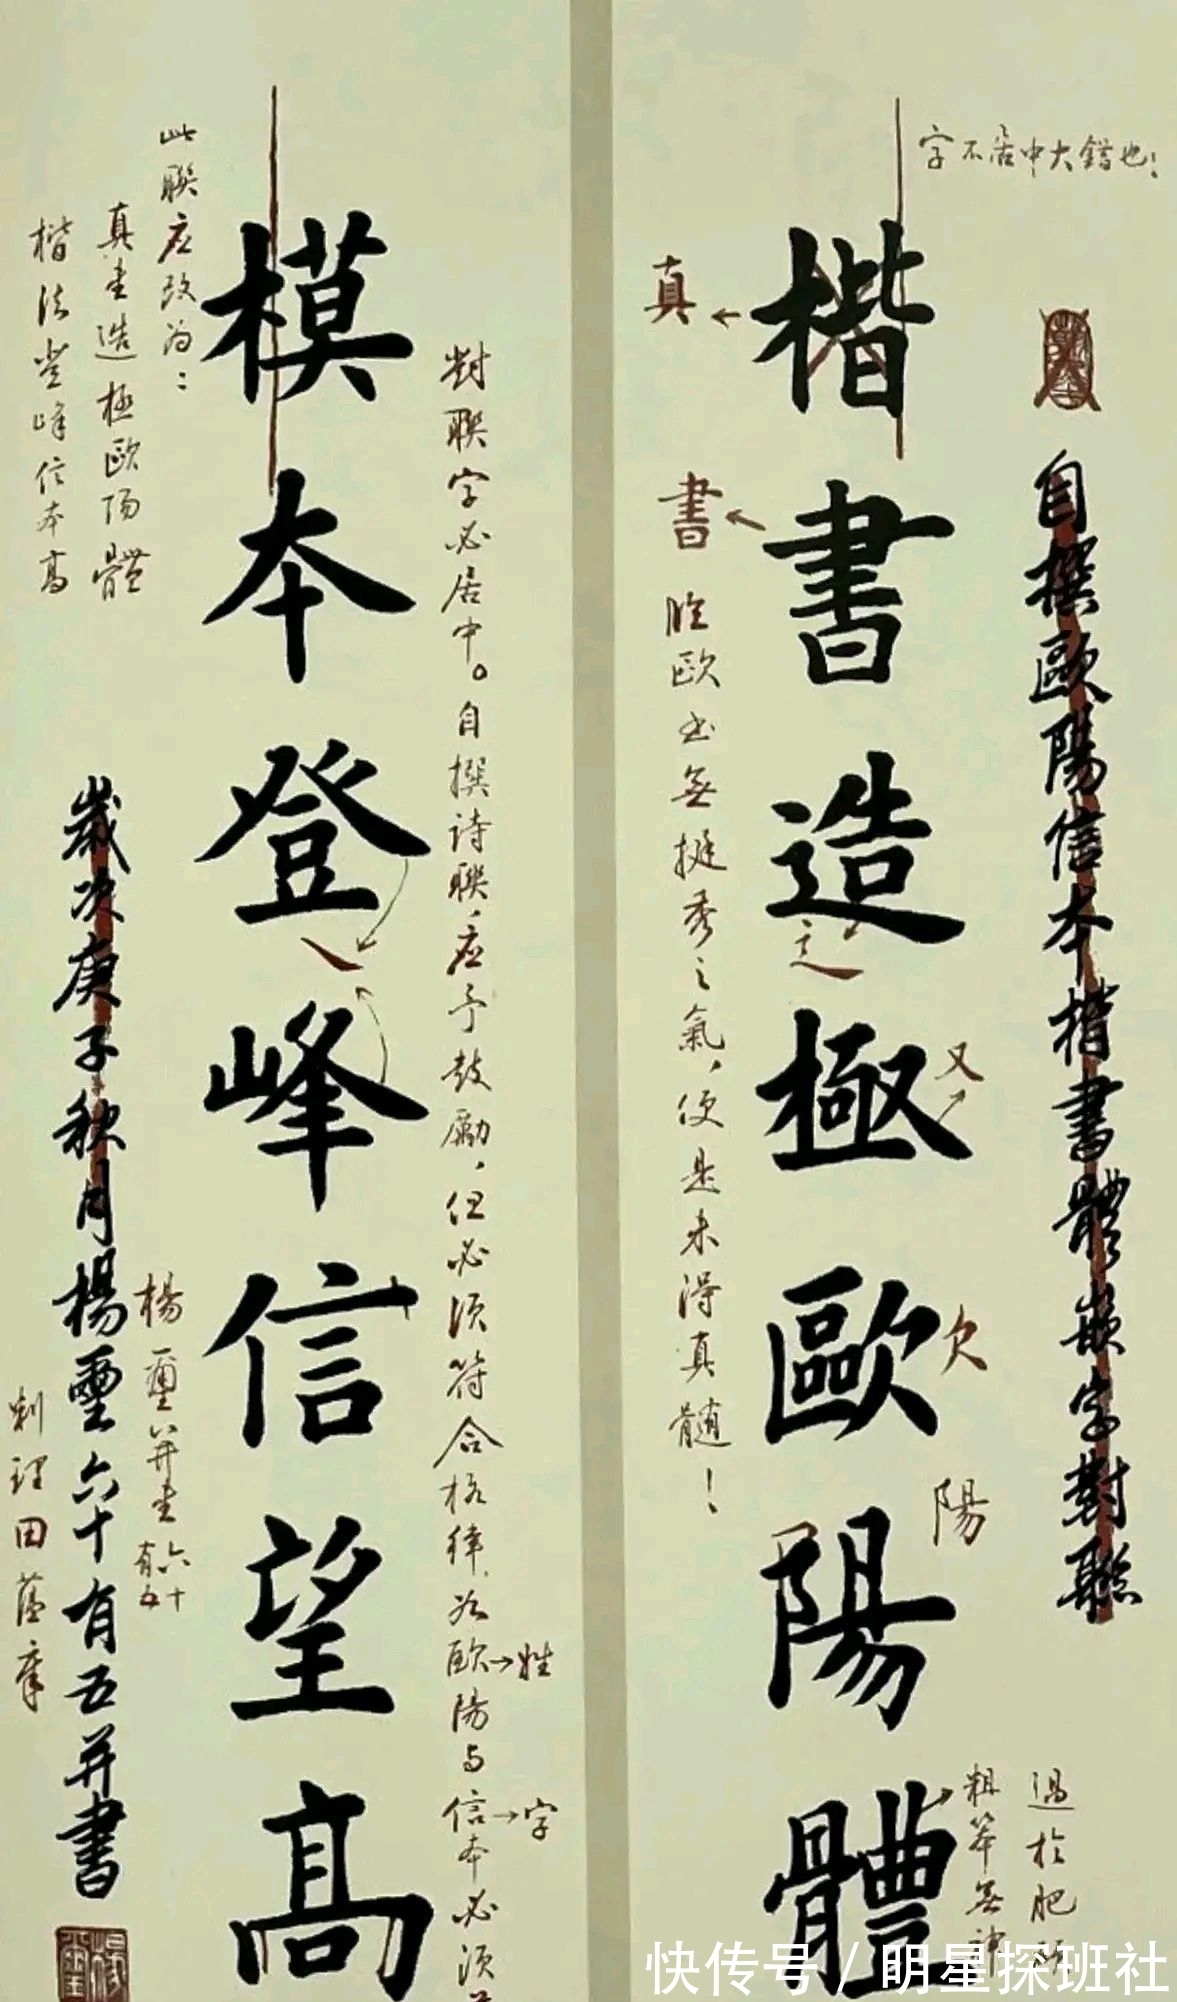 字不居中大錯也！
自撰歐陽信本楷書體嵌字對聯
楷書造極歐陽體
真
書
辶
又
欠
陽
粗笨無神
過於肥
臨歐书無挺秀之氣，便是未得真髓！
對聯字必居中。自撰诗聯，应予鼓勵，但必须符合格律，如歐陽与信本必须
姓
字
模本登峰信望高
此聯应改为：
真書造極歐陽體
楷法登峰信本高
歲次庚子秋月楊璽六十有五并書
楊璽并書
六十有五
田蕴章
快传号/明星探班社